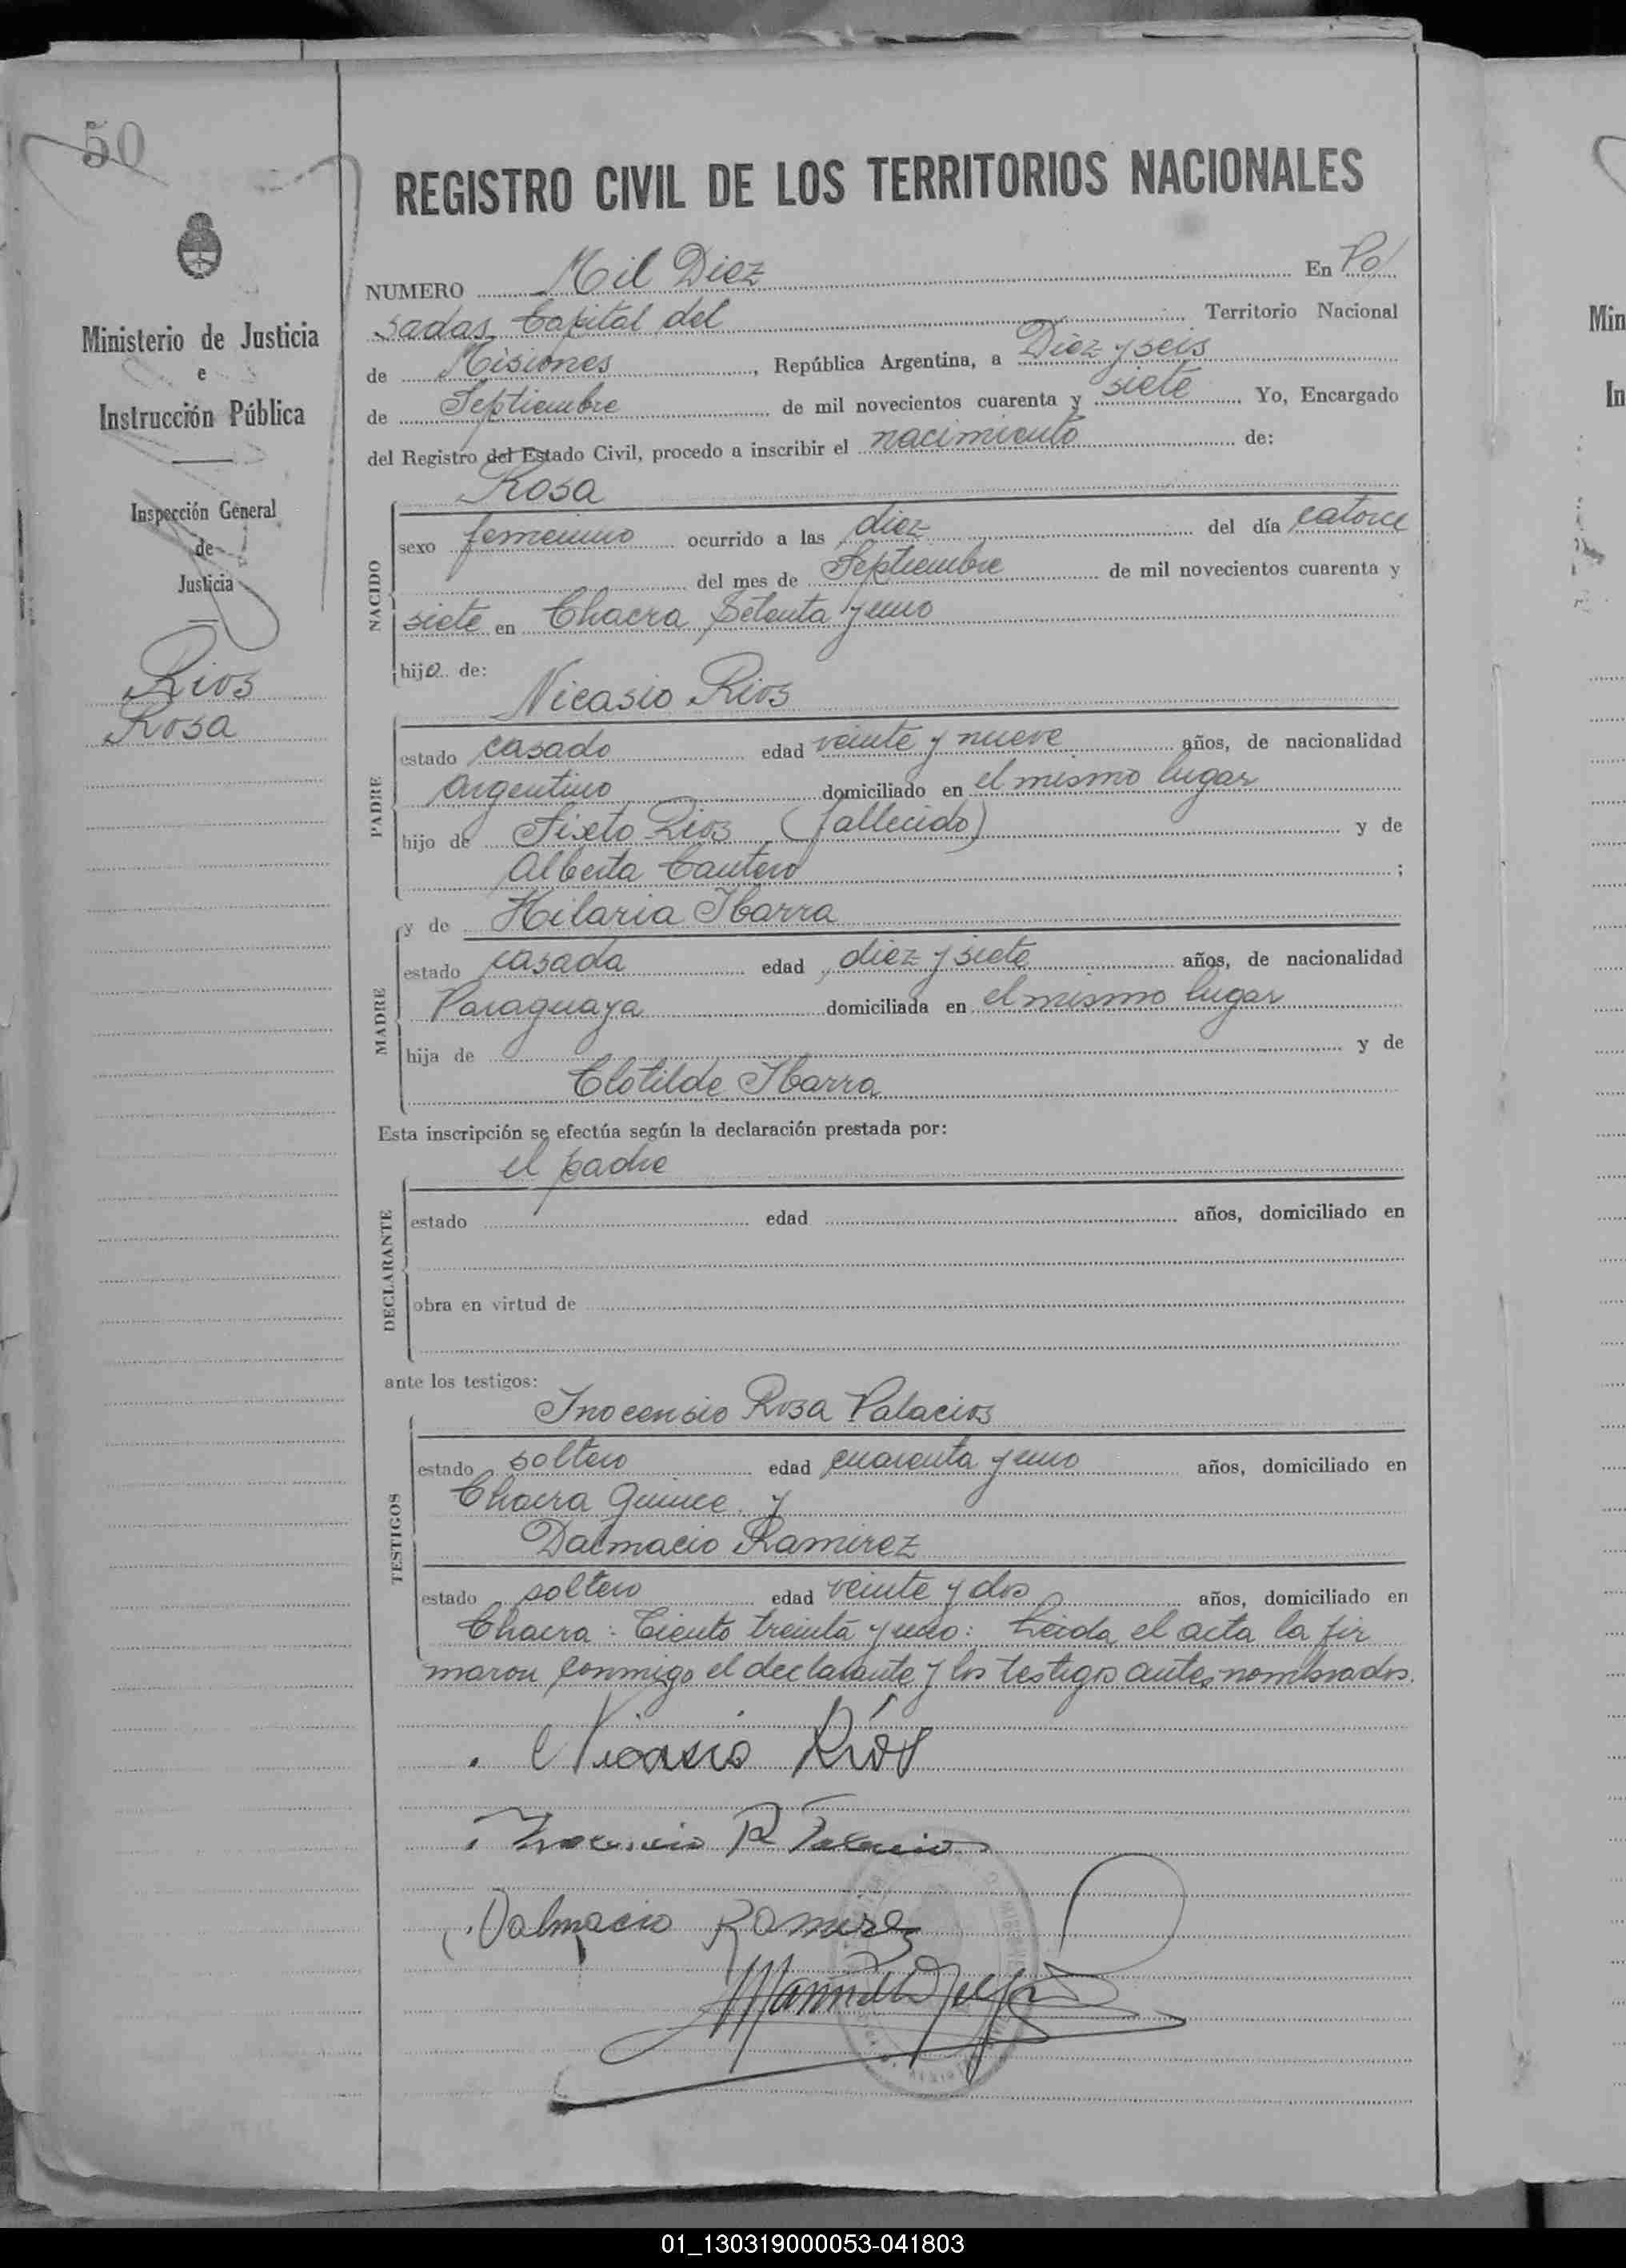 50
Ministerio de Justicia
e
Instrucción Pública
Inspección General
de
Justicia
Rios
Rosa
REGISTRO CIVIL DE LOS TERRITORIOS NACIONALES
NUMERO Mil Diez En Po/
sadas Capital del Territorio Nacional
de Misiones, República Argentina, a Diez y seis
de Septiembre de mil novecientos cuarenta y siete Yo, Encargado
del Registro del Estado Civil, procedo a inscribir el nacimiento de:
Rosa
NACIDO
sexo femenino ocurrido a las diez del día catorce
del mes de Septiembre de mil novecientos cuarenta y
siete en Chacra Setenta y uno
hija de:
Nicasio Rios
PADRE
estado casado edad veinte y nueve años, de nacionalidad
argentino domiciliado en el mismo lugar
hijo de Sixto Rios (fallecido) y de
Alberta Cantero ;
y de Hilaria Ibarra
MADRE
estado casada edad diez y siete años, de nacionalidad
Paraguaya domiciliada en el mismo lugar
hija de y de
Clotilde Ibarra
Esta inscripción se efectúa según la declaración prestada por:
el padre
DECLARANTE
estado edad años, domiciliado en
obra en virtud de
ante los testigos:
Inocensio Rosa Palacios
TESTIGOS
estado soltero edad cuarenta y uno años, domiciliado en
Chacra quince. y
Dalmacio Ramirez
estado soltero edad veinte y dos años, domiciliado en
Chacra: Ciento treinta y uno: Leida el acta la fir
maron conmigo el declarante y los testigos antes nombrados.
Nicasio Ríos
Inocencio R Palacios
Dalmacio Ramirez
Min
In
01_130319000053-041803